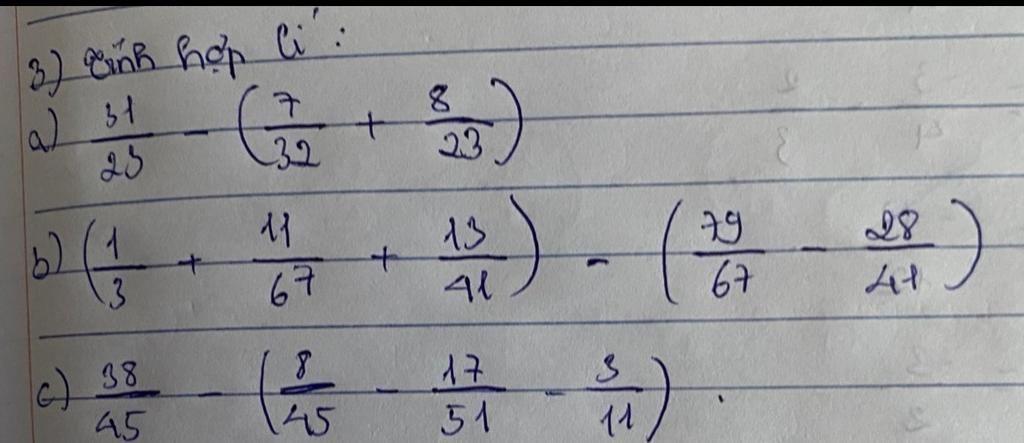 3) Tính hợp lí :
a) 31/23 - (7/32 + 8/23)
b) (1/3 + 11/67 + 13/41) - (79/67 - 28/41)
c) 38/45 - (8/45 - 17/51 - 3/11) .